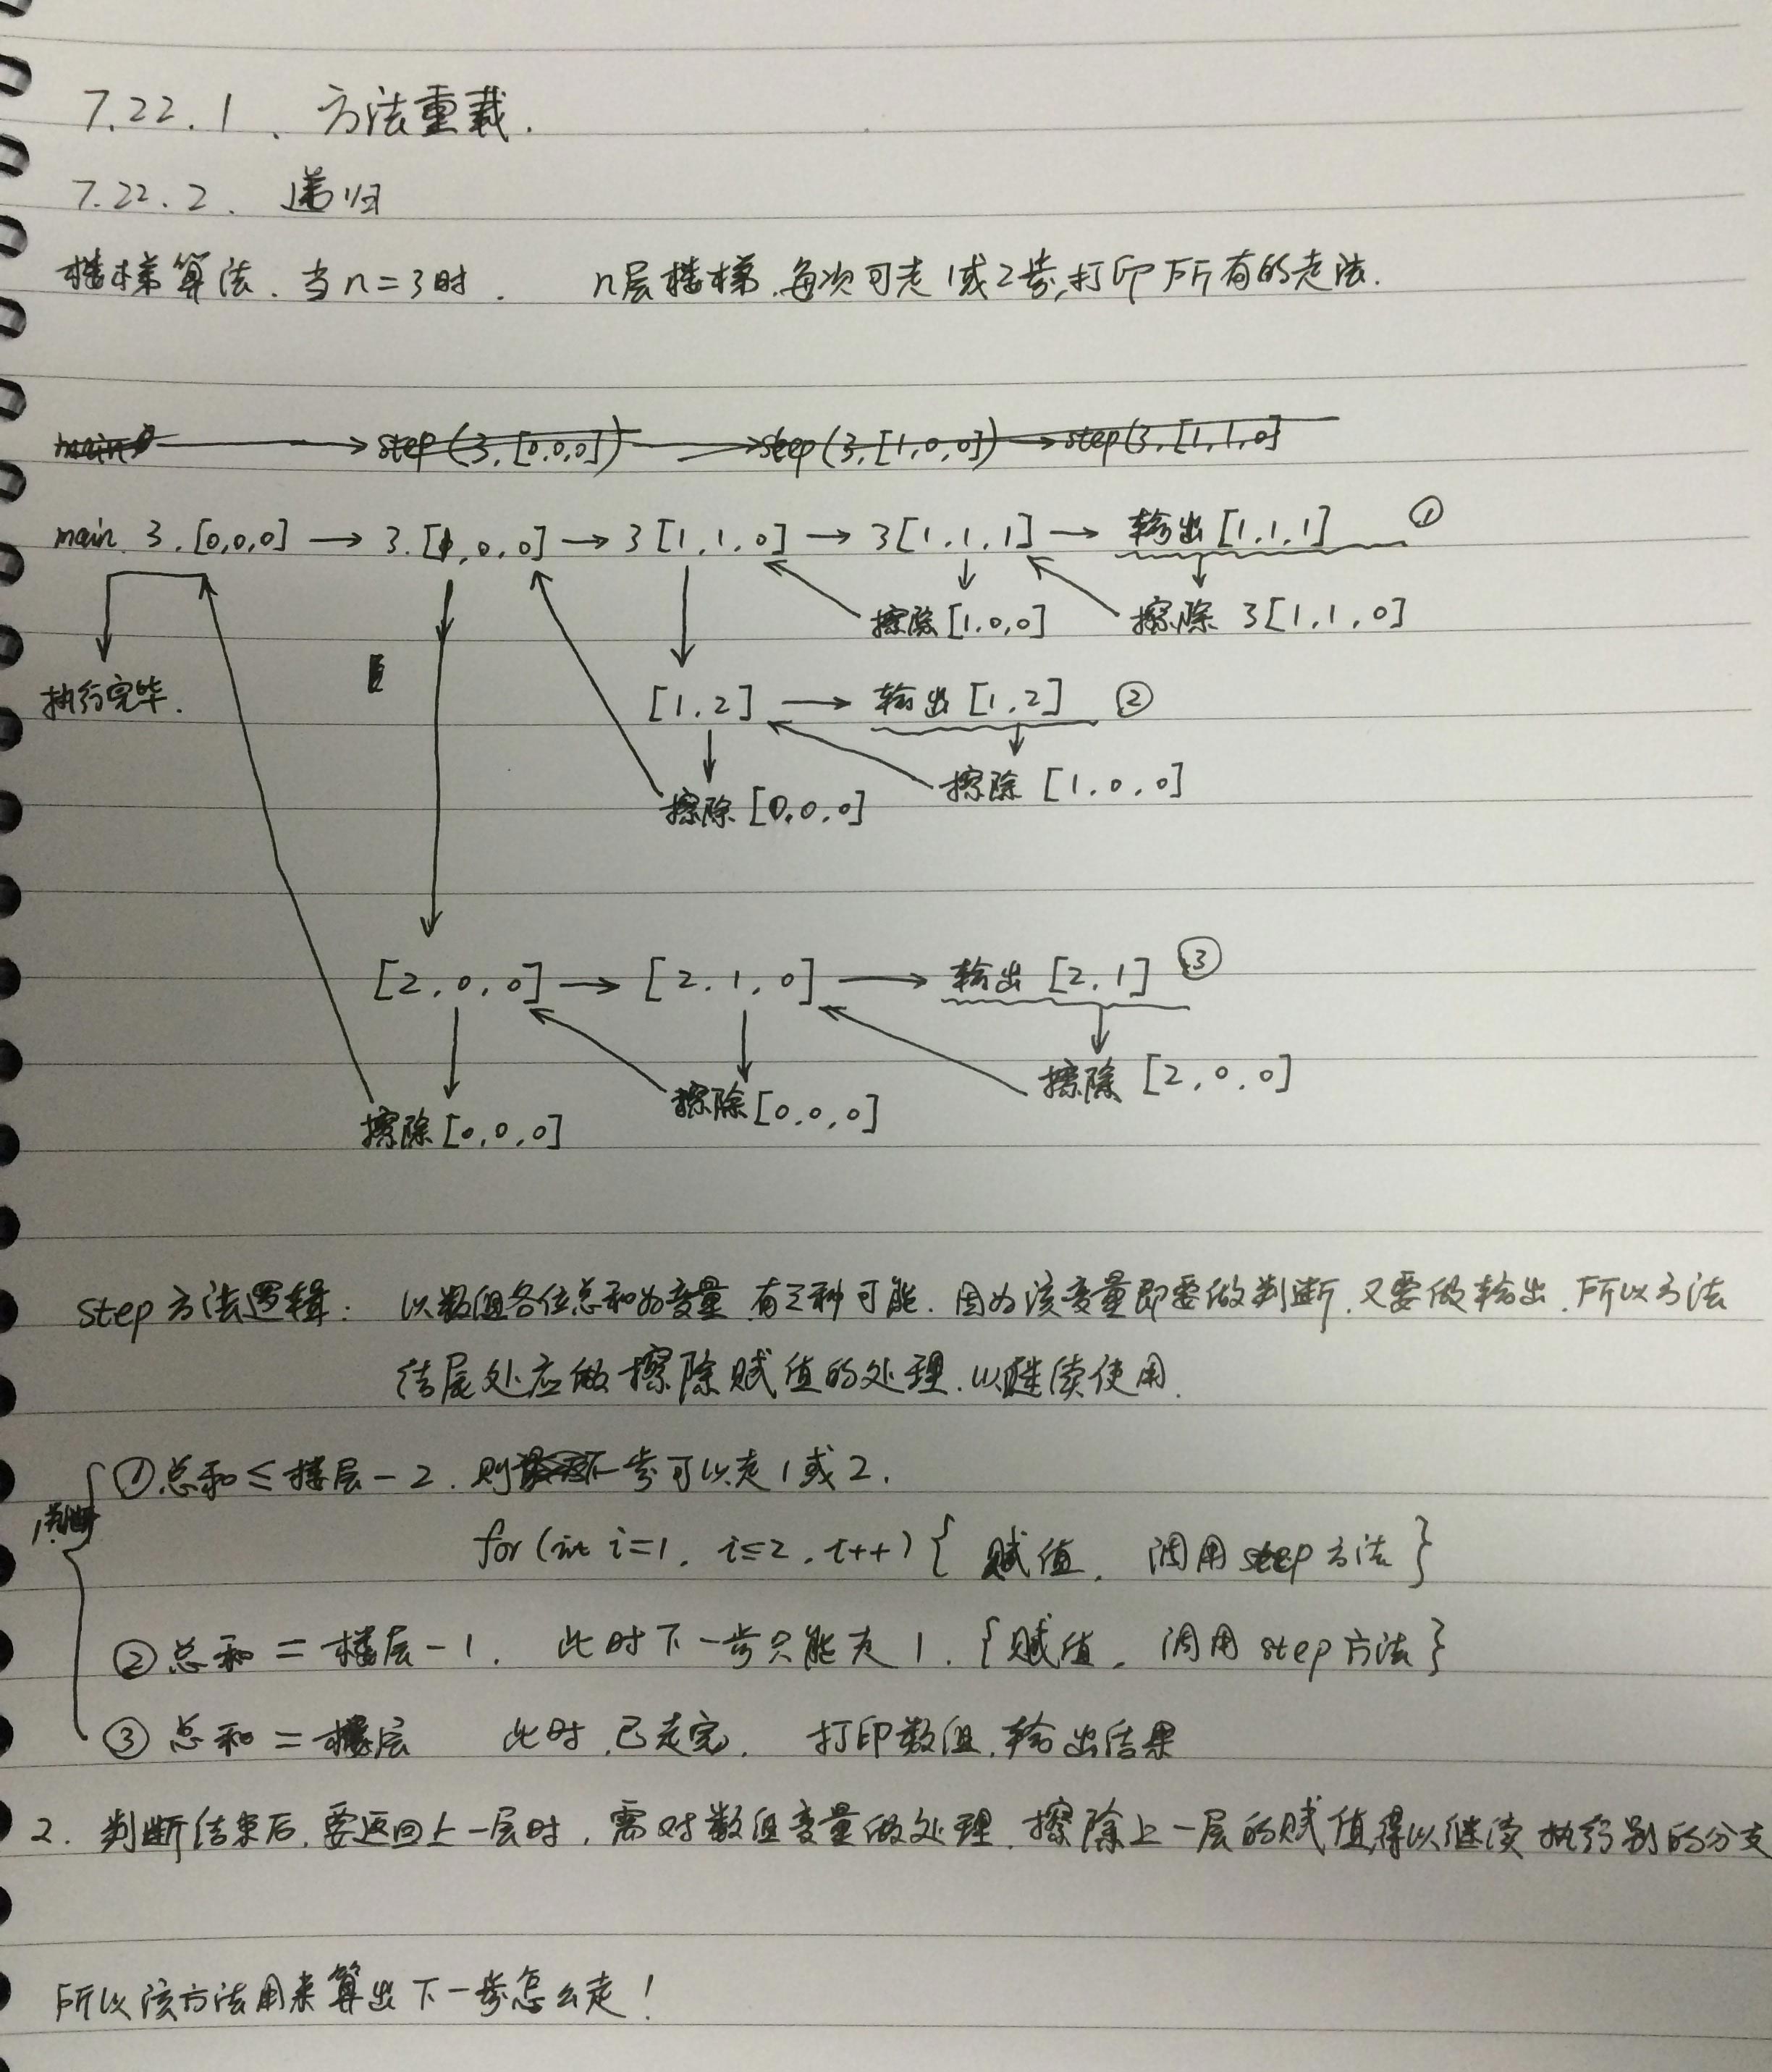 7.22.1、方法重载.
7.22.2. 递归
楼梯算法. 当n=3时. n层楼梯.每次可走1或2步,打印所有的走法.
main → step(3,[0,0,0]) → step(3,[1,0,0]) → step(3,[1,1,0]
main. 3.[0,0,0] → 3.[1,0,0] → 3[1,1,0] → 3[1,1,1] → 输出[1,1,1] ①
擦除[1,0,0] 擦除 3[1,1,0]
执行完毕. [1,2] → 输出[1,2] ②
擦除[0,0,0] 擦除 [1,0,0]
[2,0,0] → [2,1,0] → 输出[2,1] ③
擦除[0,0,0] 擦除[0,0,0] 擦除 [2,0,0]
step方法逻辑: 以数组各位总和为变量.有三种可能.因为该变量即要做判断,又要做输出.所以方法
结尾处应做擦除赋值的处理.以继续使用.
1.判断 ①总和≤楼层-2.则下一步可以走1或2.
for(int i=1, i≤2, i++){ 赋值, 调用step方法 }
②总和=楼层-1. 此时下一步只能走1.{赋值, 调用step方法}
③总和=楼层 此时,已走完. 打印数组,输出结果
2. 判断结束后,要返回上一层时,需对数组变量做处理.擦除上一层的赋值,得以继续执行别的分支
所以该方法用来算出下一步怎么走!